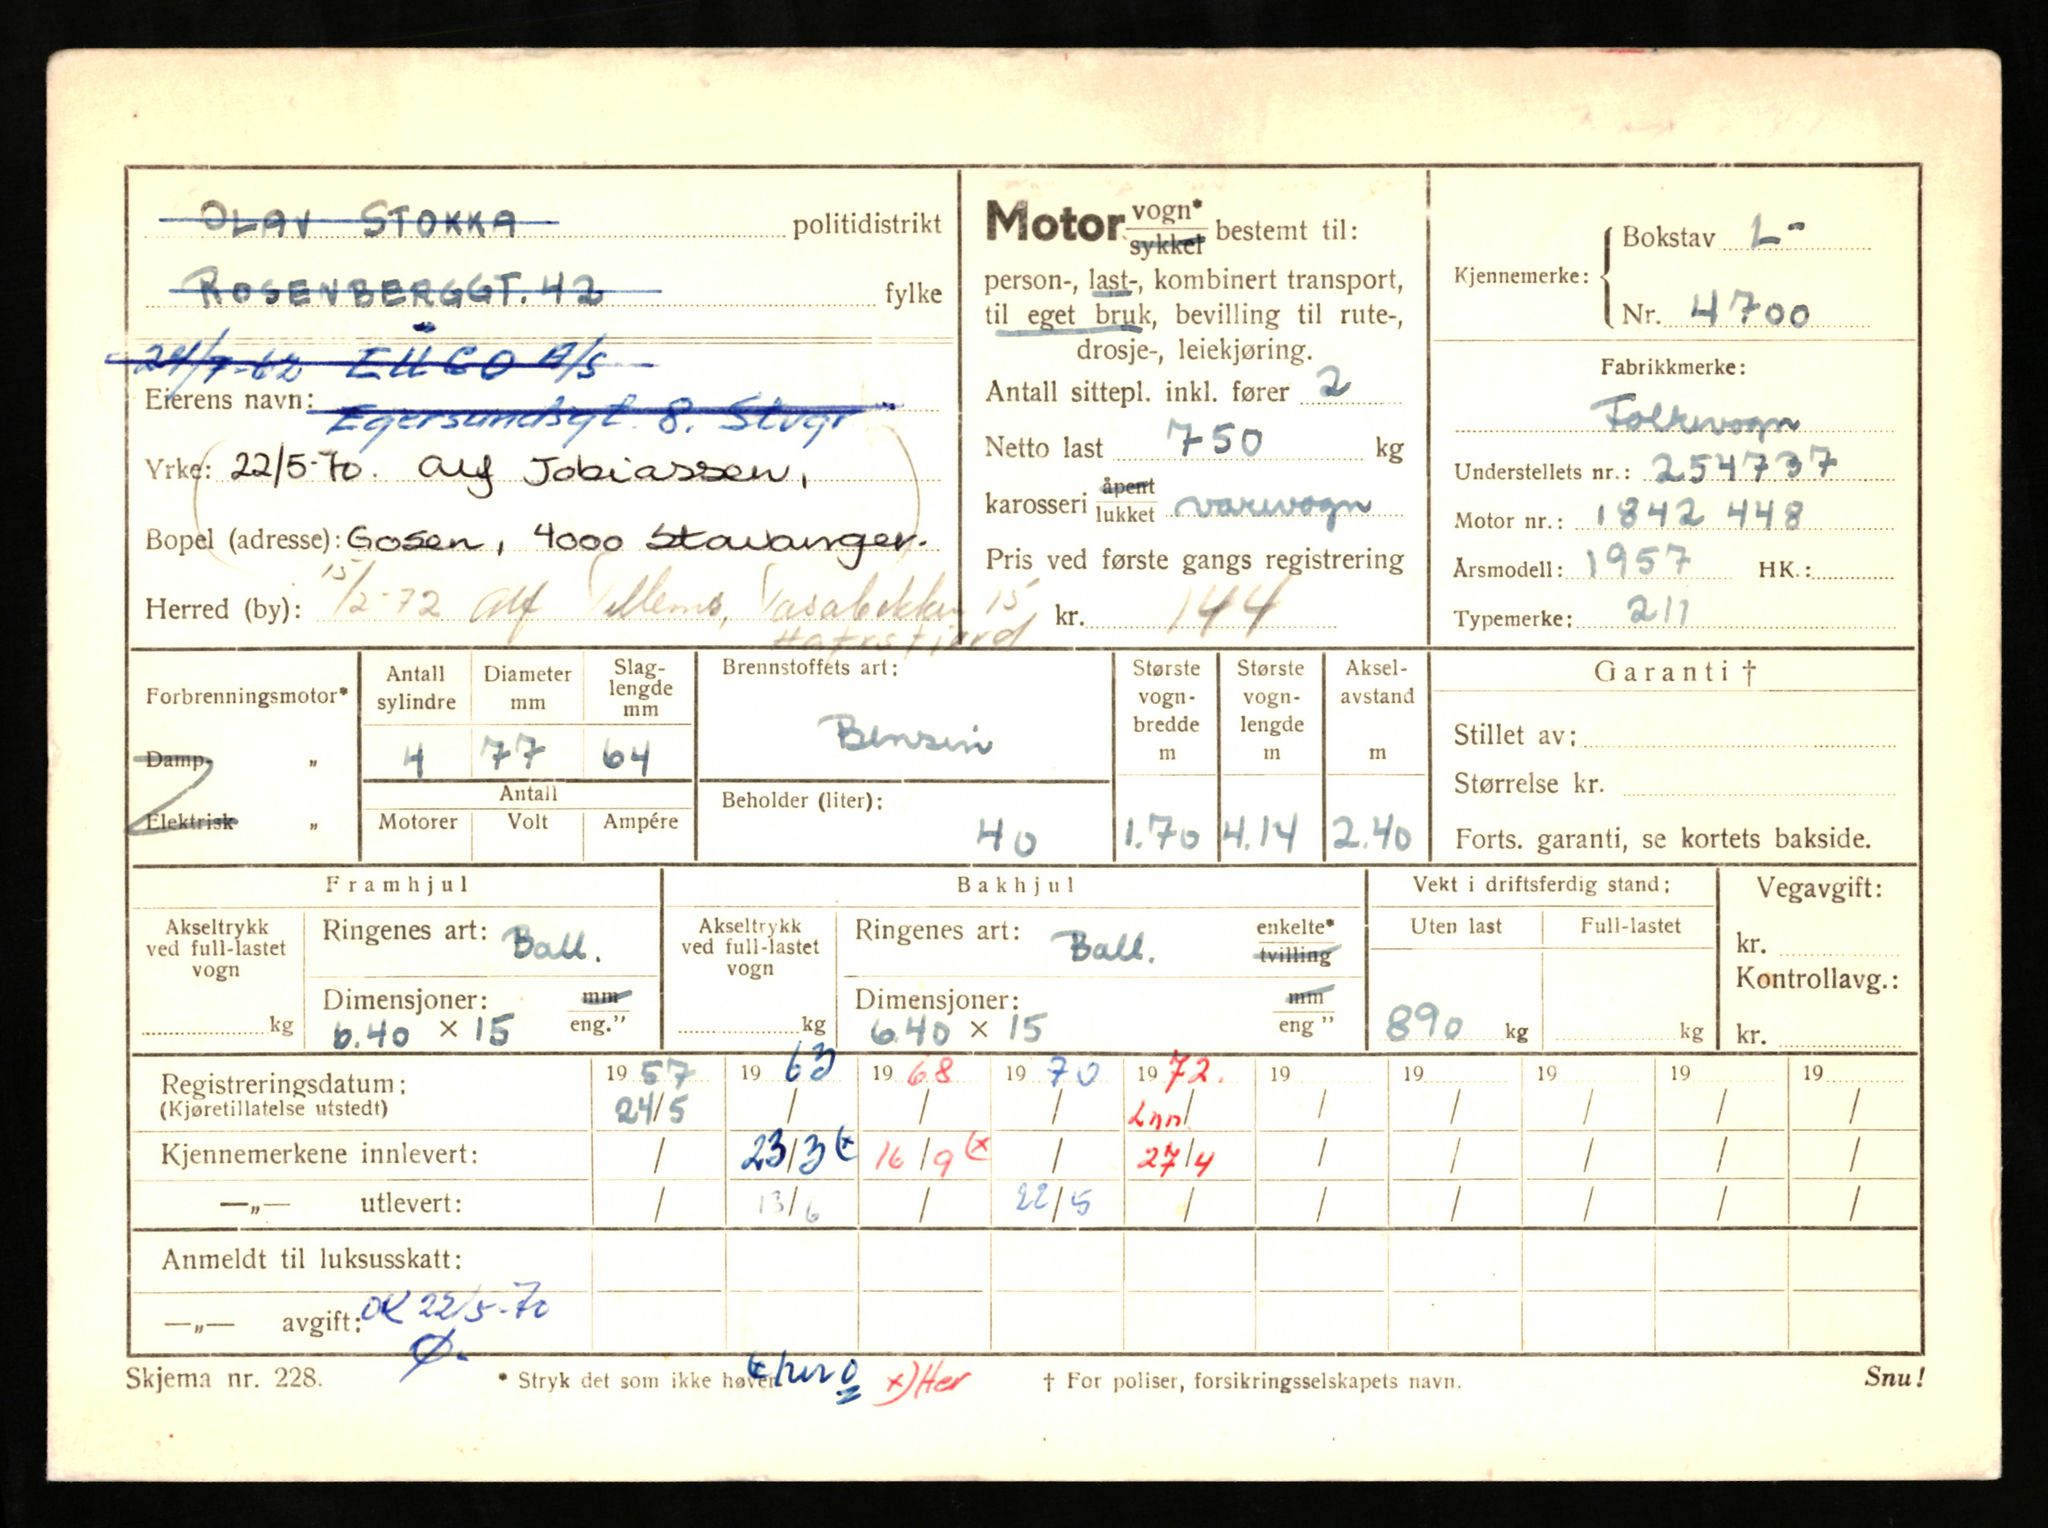 OLAV STOKKA politidistrikt
ROSENBERGGT. 42 fylke
24/7-62 A/S
Eierens navn: Egersundsgt. 8. Stvgr
Yrke: 22/5-70. Alf Tobiassen,
Bopel (adresse): Gosen, 4000 Stavanger.
Herred (by): 15/2-72 Alf 15
Hafrsfjord
Motor vogn* sykkel bestemt til:
person-, last-, kombinert transport,
til eget bruk, bevilling til rute-,
drosje-, leiekjøring.
Antall sittepl. inkl. fører 2
Netto last 750 kg
karosseri åpent lukket varevogn
Pris ved første gangs registrering
kr. 144
Kjennemerke: Bokstav L-
Nr. 4700
Fabrikkmerke:
Folkevogn
Understellets nr.: 254737
Motor nr.: 1842 448
Årsmodell: 1957 HK.:
Typemerke: 211
Forbrenningsmotor*
Damp- „
Elektrisk „
Antall sylindre
4
Diameter mm
77
Slag-lengde mm
64
Antall
Motorer Volt Ampére
Brennstoffets art:
Bensin
Beholder (liter):
40
Største vogn-bredde m
1.70
Største vogn-lengde m
4.14
Aksel-avstand m
2.40
Garanti †
Stillet av:
Størrelse kr.
Forts. garanti, se kortets bakside.
Framhjul
Akseltrykk ved full-lastet vogn
kg
Ringenes art: Ball.
Dimensjoner: mm eng."
6.40 × 15
Bakhjul
Akseltrykk ved full-lastet vogn
kg
Ringenes art: Ball. enkelte* tvilling
Dimensjoner: mm eng "
6.40 × 15
Vekt i driftsferdig stand:
Uten last Full-lastet
890 kg kg
Vegavgift:
kr.
Kontrollavg.:
kr.
Registreringsdatum: 19 57 19 63 19 68 19 70 19 72. 19 19 19 19 19
(Kjøretillatelse utstedt) 24/5 / / / Lnn/ / / / / /
Kjennemerkene innlevert: / 23/3 (x 16/9 (x / 27/4 / / / / /
—„— utlevert: / 13/6 / 22/5 / / / / / /
Anmeldt til luksusskatt:
—„— avgift: OK 22/5-70
Ø.
Skjema nr. 228. * Stryk det som ikke høver x) Her † For poliser, forsikringsselskapets navn. Snu!